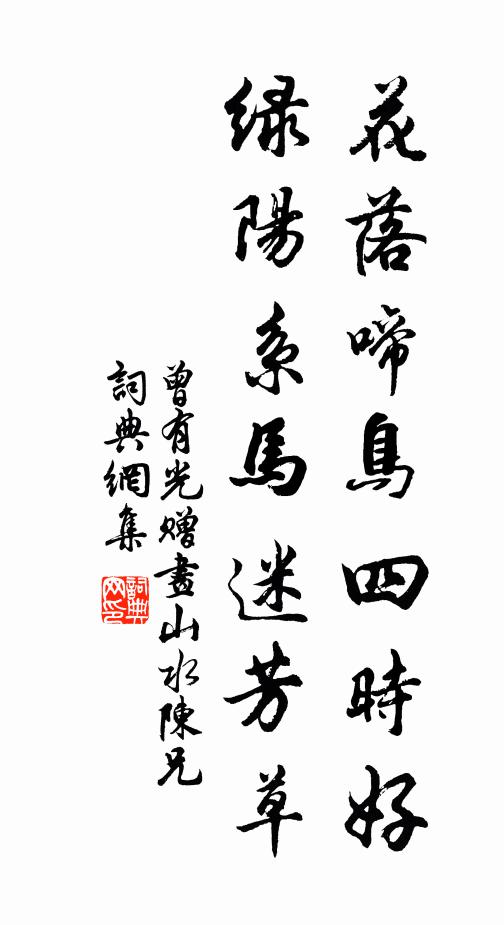 花落啼鳥四時好
緑陽系馬迷芳草
曾有光贈畫山水陳兄
詞典網集
詞典網印